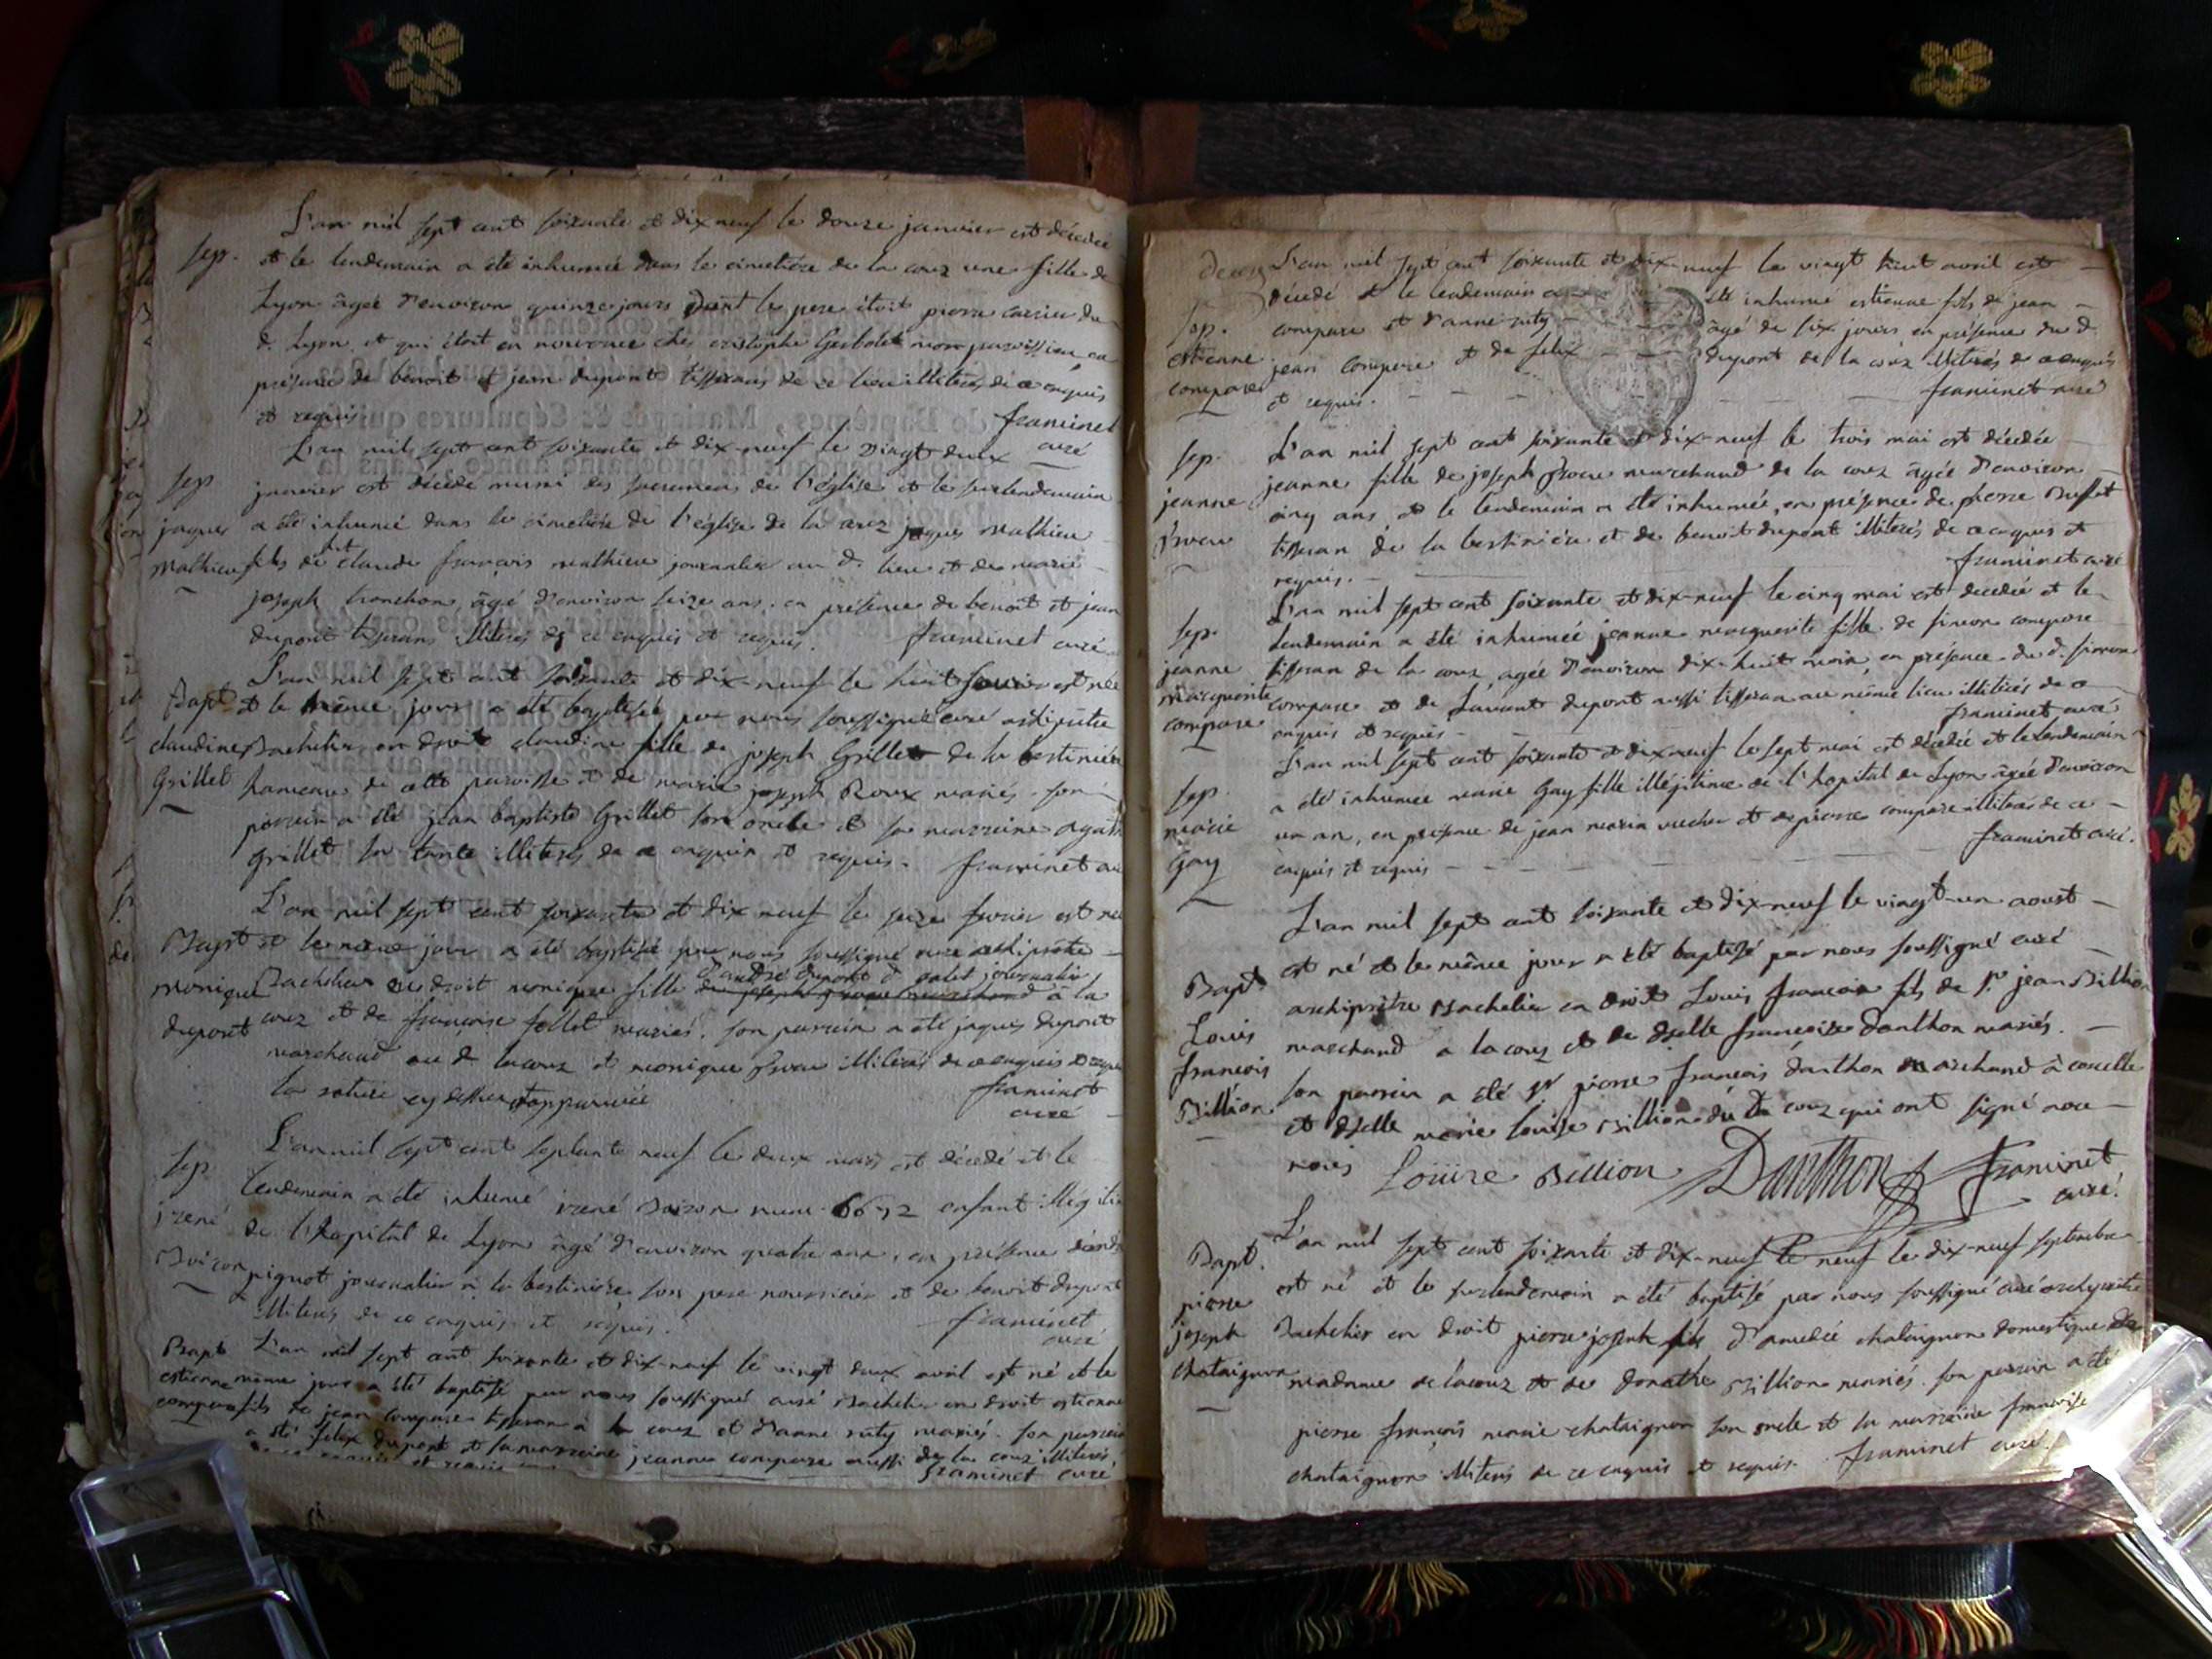 L'an mil sept cent soixante et dix neuf le douze janvier est décédée
sep. et le lendemain a été inhumée dans le cimetière de la couz une fille de
Lyon âgée d'environ quinze jours dont le pere étoit pierre
d. Lyon et qui étoit en nourrice chés cristophe Gerbolet mon paroissien en
présence de benoit et jean dupont tisserans de ce lieu illiterés de ce enquis
et requis. framinet
curé
L'an mil sept cent soixante et dix-neuf le vingt deux
sep janvier est décédé muni des sacremens de l'église et le surlendemain
jaques a été inhumé dans le cimetière de l'église de la couz jaques mathieu
mathieu fils de claude françois mathieu journalier au d. lieu et de marie
joseph tronchon, âgé d'environ seize ans. en présence de benoit et jean
dupont tisserans illiterés de ce enquis et requis. framinet curé
L'an mil sept cent soixante et dix-neuf le huit fevrier est née
Bapt et le même jour a été baptisée par nous soussigné curé archiprêtre
claudine Bachelier en droit claudine fille de joseph Grillet de la bestinière
Grillet hameau de cette paroisse et de marie joseph Roux mariés. son
parrain a été jean baptiste Grillet son oncle et sa marraine agathe
Grillet sa tante illiterés de ce enquis et requis. framinet
L'an mil sept cent soixante et dix neuf le seize fevrier est née
Bapt et le même jour a été baptisée par nous soussigné curé archiprêtre
d'andré dupont d. galet journalier
monique Bachelier en droit monique fille à la
dupont couz et de françoise follet mariés. son parrain a été jaques dupont
marchand au d. lacouz et monique illiterés de ce enquis et requis
la rature cy dessus approuvée framinet
curé
L'an mil sept cent septante neuf le deux mars est décédé et le
sep lendemain a été inhumé irené Boiron num. 6692 enfant illégitime
irené de l'hopital de Lyon âgé d'environ quatre ans, en présence
Boiron pignot journalier à la bestinière son pere nourricier et de benoit dupont
illiterés de ce enquis et requis. framinet
curé
Bapt L'an mil sept cent soixante et dix-neuf le vingt deux avril est né et le
estienne même jour a été baptisé par nous soussigné curé Bachelier en droit estienne
compare fils de jean compare tisseran à la couz et d'anne ruty mariés. son parrain
a été felix dupont et la marraine jeanne compare aussi de la couz illiterés
framinet curé
deux L'an mil sept cent soixante et dix-neuf le vingt huit avril est
décédé et le lendemain a été inhumé estienne fils de jean
sep. compare et d'anne ruty âgé de six jours en présence du d.
estienne jean compare et de felix dupont de la couz illiterés de ce enquis
compare et requis. framinet curé
L'an mil sept cent soixante et dix-neuf le trois mai est décédée
sep. jeanne fille de joseph marchand de la couz âgée d'environ
jeanne cinq ans, et le lendemain a été inhumée, en présence de pierre Buffet
tisseran de la bestinière et de benoit dupont illiterés de ce enquis et
requis. framinet curé
L'an mil sept cent soixante et dix-neuf le cinq mai est décédée et le
sep. lendemain a été inhumée jeanne marguerite fille de simon compare
jeanne tisseran de la couz, agée d'environ dix-huit mois, en présence du d. simon
marguerite compare et de dupont aussi tisseran au même lieu illiterés de ce
compare enquis et requis. framinet curé
L'an mil sept cent soixante et dix neuf le sept mai est décédée et le lendemain
sep. a été inhumée marie Gay fille illégitime de l'hopital de Lyon âgée d'environ
marie un an, en présence de jean marin vucher et de pierre compare illiterés de ce
Gay enquis et requis framinet curé.
L'an mil sept cent soixante et dix-neuf le vingt-un aoust
est né et le même jour a été baptisé par nous soussigné curé
Bapt. archiprêtre Bachelier en droit Louis françois fils de sr. jean Billion
Louis marchand a lacouz et de dselle françoise danthon mariés.
françois son parrain a été sr. pierre françois danthon marchand à corcelle
Billion et dselle marie louise Billion du d. la couz qui ont signé avec
nous Louise Billion Danthon framinet
curé.
L'an mil sept cent soixante et dix-neuf le neuf le dix-neuf septembre
Bapt. est né et le surlendemain a été baptisé par nous soussigné curé archyprêtre
pierre Bachelier en droit pierre joseph fils d'amedée chataignon domestique de
joseph madame de lacouz et de donathe Billion mariés. son parrain a été
chataignon pierre françois marie chataignon son oncle et la marraine françoise
chataignon illiterés de ce enquis et requis. framinet curé.